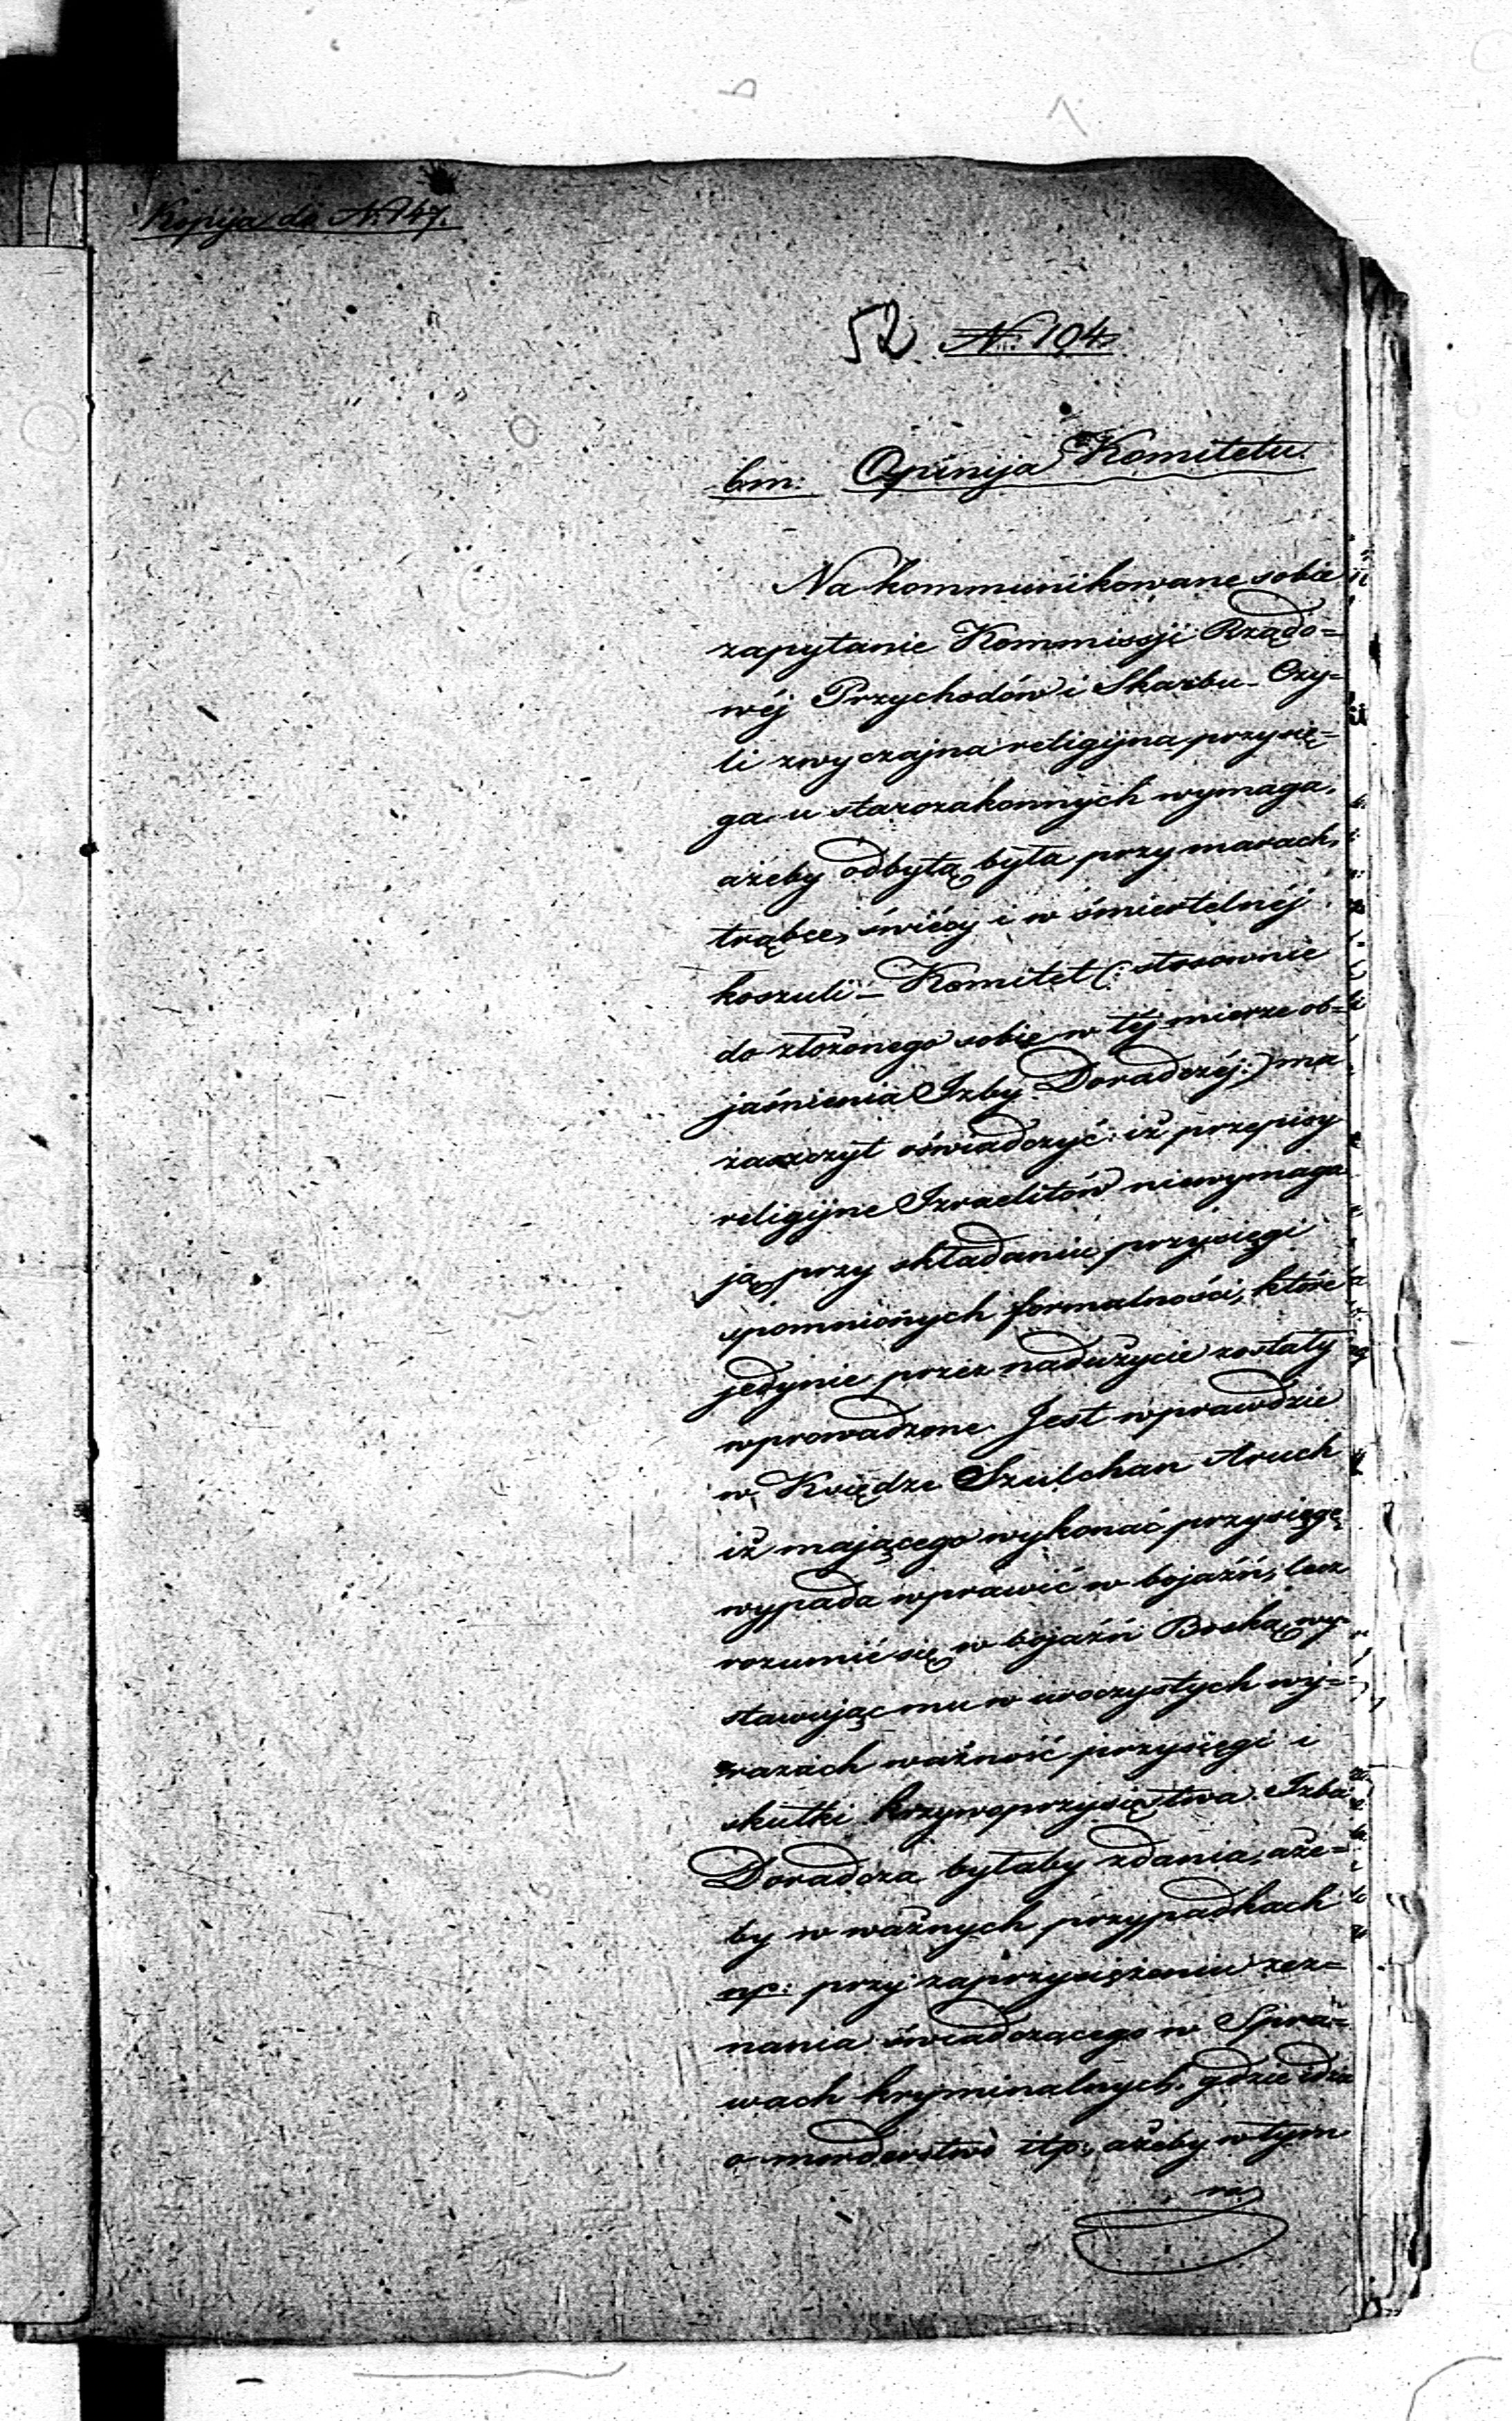 Kopija do N. 147.
52 N. 104
bm: Opinija Komitetu.
Na kommunikowane sobie
zapytanie Kommissji Rządo=
wéj Przychodów i Skarbu – Czy=
li zwyczajna religijna przysię=
ga u starozakonnych wymaga,
ażeby odbytą była przy marach,
trąbce, świécy i w śmiertelnéj
koszuli – Komitet (: stosownie
do złożonego sobie w téj mierze ob=
jaśnienia Izby Doradczéj :) ma
zaszczyt oświadczyć: iż przepisy
religijne Izraelitów niewymaga
ją przy składaniu przysięgi
spomnionych formalności, które
jedynie przez nadużycie zostały
wprowadzone. Jest wprawdzie
w Księdze Szulchan Aruch
iż mającego wykonać przysięgę
wypada wprawić w bojaźń, lecz
rozumié się w bojaźń Boską, wy=
stawując mu w uroczystych wy=
razach ważność przysięgi i
skutki krzywoprzysięstwa. Izba
Doradcza byłaby zdania, aże=
by w ważnych przypadkach
np: przy zaprzysiężeniu zez=
nania świadczącego w Spra=
wach kryminalnych, gdzie idzie
o morderstwo itp:, ażeby w tym
ra